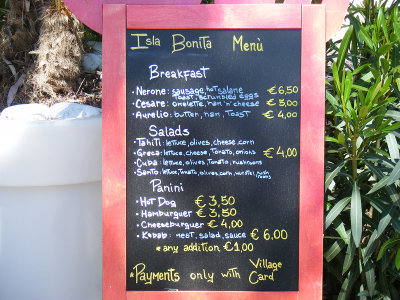 Isla Bonita Menù
Breakfast
• Nerone: sausage, hot salame
toast, scrumbled eggs € 6,50
• Cesare: omelette, ham 'n' cheese € 5,00
• Aurelio: butter, ham, toast € 4,00
Salads
• Tahiti: lettuce, olives, cheese, corn
• Greca: lettuce, cheese, tomato, onions € 4,00
• Cuba: lettuce, olives, tomato, mushrooms
• Santo: lettuce, tomato, olives, corn,
Panini
• Hot Dog € 3,50
• Hamburguer € 3,50
• Cheeseburguer € 4,00
• Kebab: meat, salad, sauce € 6,00
*any addition €1,00
*Payments only with Village
Card